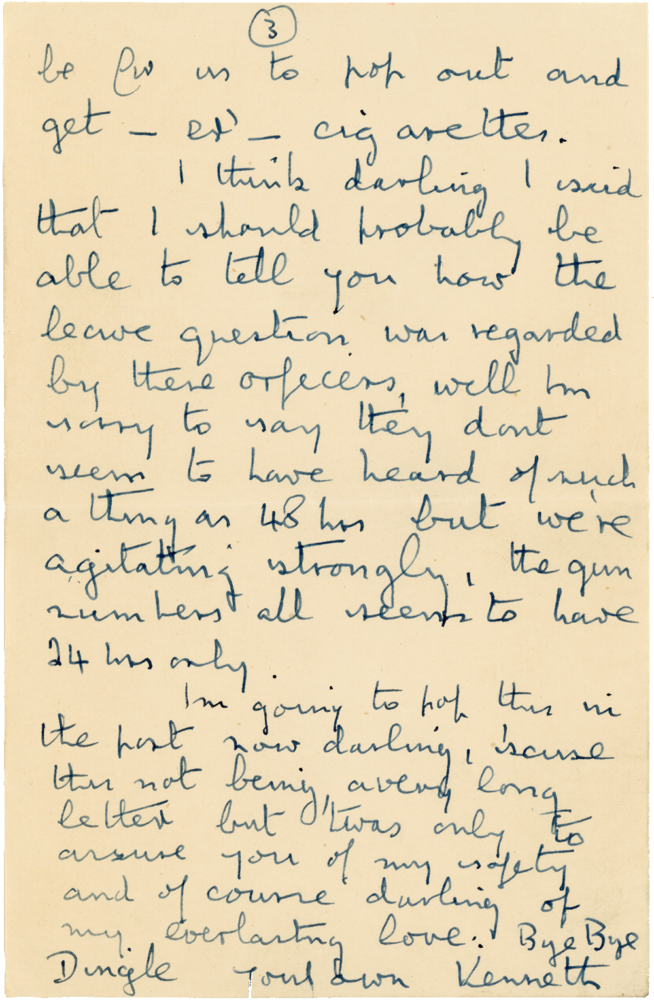 3
be for us to pop out and
get – er' – cigarettes.
I think darling I said
that I should probably be
able to tell you how the
leave question was regarded
by these officers, well Im
sorry to say they dont
seem to have heard of such
a thing as 48 hrs but we're
agitating strongly, the gun
numbers all seems to have
24 hrs only.
Im going to pop this in
the post now darling, 'scuse
this not being a very long
letter but 'twas only to
assure you of my safety
and of course darling of
my everlasting love. Bye Bye
Dingle your own Kenneth